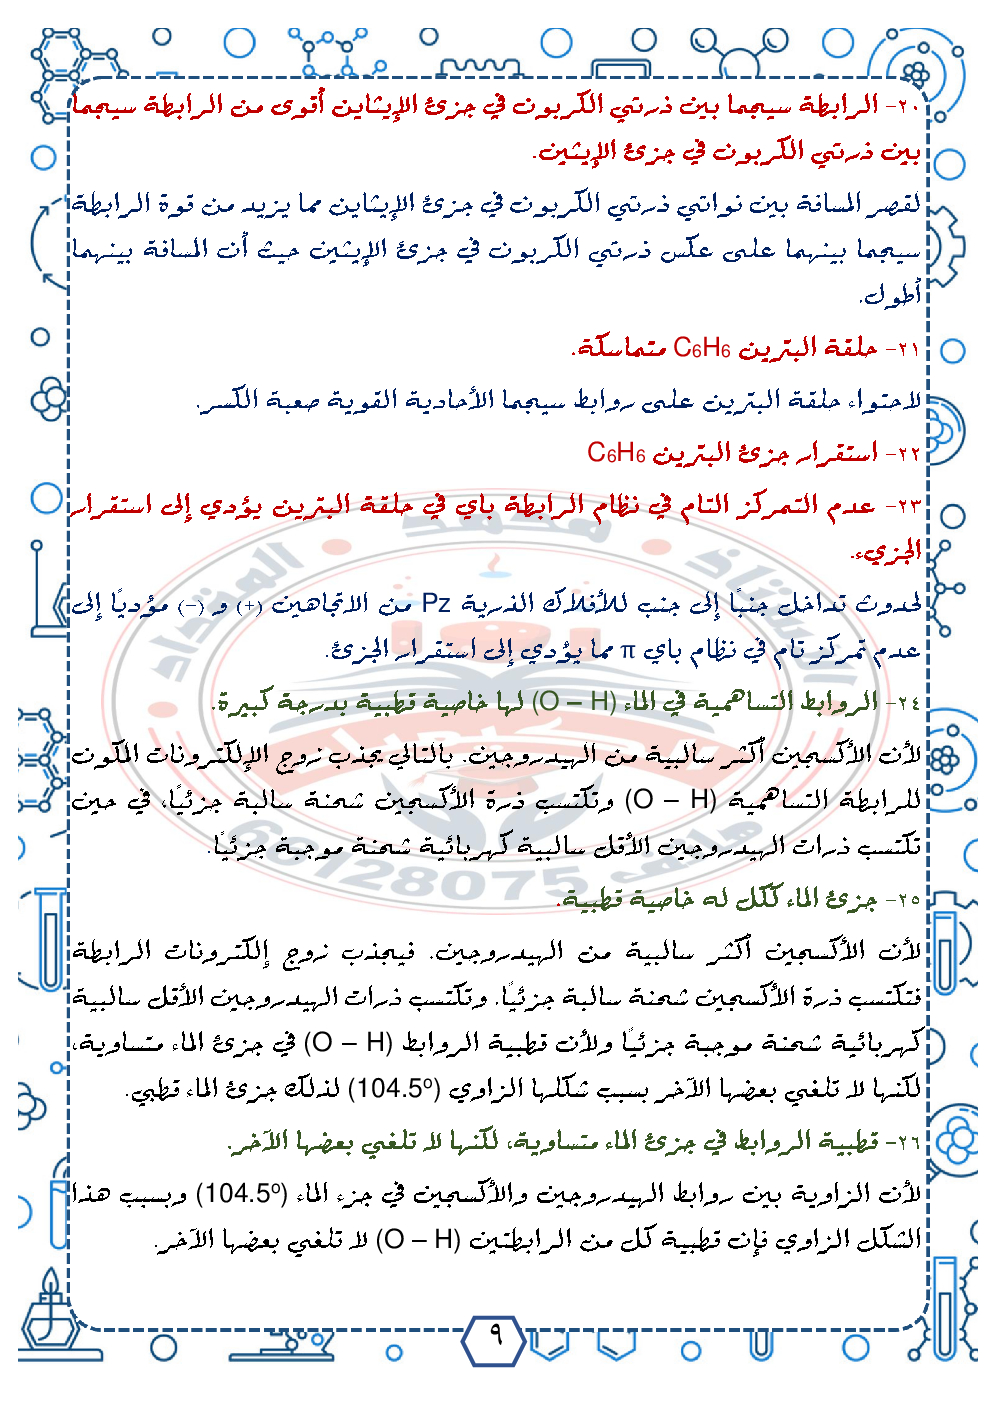 ٢٠- الرابطة سيجما بين ذرتي الكربون في جزئ الإيثاين أقوى من الرابطة سيجما
بين ذرتي الكربون في جزئ الإيثين.
لقصر المسافة بين نواتي ذرتي الكربون في جزئ الإيثاين مما يزيد من قوة الرابطة
سيجما بينهما على عكس ذرتي الكربون في جزئ الإيثين حيث أن المسافة بينهما
أطول.
٢١- حلقة البنزين C6H6 متماسكة.
لاحتواء حلقة البنزين على روابط سيجما الأحادية القوية صعبة الكسر.
٢٢- استقرار جزئ البنزين C6H6
٢٣- عدم التمركز التام في نظام الرابطة باي في حلقة البنزين يؤدي إلى استقرار
الجزيء.
لحدوث تداخل جنبًا إلى جنب للأفلاك الذرية Pz من الاتجاهين (+) و (-) مؤديًا إلى
عدم تمركز تام في نظام باي π مما يؤدي إلى استقرار الجزئ.
٢٤- الروابط التساهمية في الماء (O – H) لها خاصية قطبية بدرجة كبيرة.
لأن الأكسجين أكثر سالبية من الهيدروجين. بالتالي يجذب زوج الإلكترونات المكون
للرابطة التساهمية (O – H) وتكتسب ذرة الأكسجين شحنة سالبة جزئيًا، في حين
تكتسب ذرات الهيدروجين الأقل سالبية كهربائية شحنة موجبة جزئيًا.
٢٥- جزئ الماء ككل له خاصية قطبية.
لأن الأكسجين أكثر سالبية من الهيدروجين. فيجذب زوج إلكترونات الرابطة
فتكتسب ذرة الأكسجين شحنة سالبة جزئيًا. وتكتسب ذرات الهيدروجين الأقل سالبية
كهربائية شحنة موجبة جزئيًا ولأن قطبية الروابط (O – H) في جزئ الماء متساوية،
لكنها لا تلغي بعضها الآخر بسبب شكلها الزاوي (104.5º) لذلك جزئ الماء قطبي.
٢٦- قطبية الروابط في جزئ الماء متساوية، لكنها لا تلغي بعضها الآخر.
لأن الزاوية بين روابط الهيدروجين والأكسجين في جزء الماء (104.5º) وبسبب هذا
الشكل الزاوي فإن قطبية كل من الرابطتين (O – H) لا تلغي بعضها الآخر.
٩